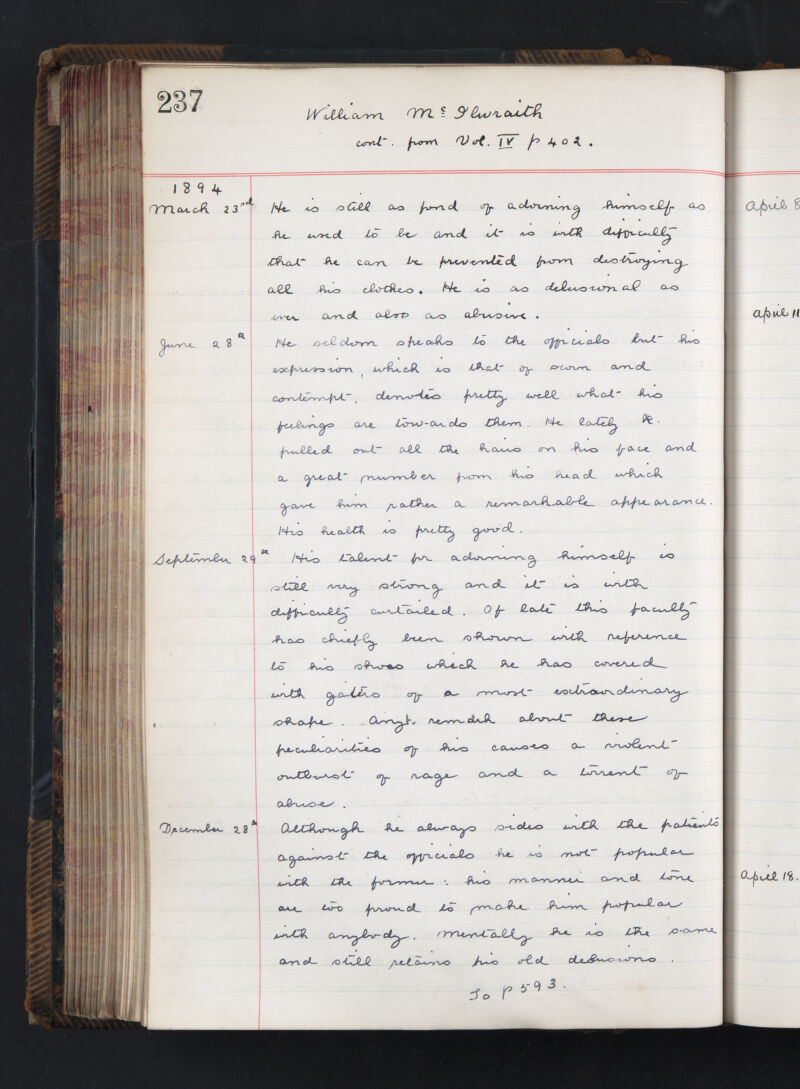 237
William McIlwraith
cont. from Vol. IV p 402.
1894
March 23rd He is still as fond of adorning himself as
he used to be and it is with difficulty
that he can be prevented from destroying
all his clothes. He is as delusional as
ever and also as abusive.
June 28th He seldom speaks to the officials but his
expression, which is that of scorn and
contempt, denotes pretty well what his
feelings are tow-ards them. He lately
pulled out all the hairs on his face and
a great number from his head which
gave him rather a remarkable appearance.
His health is pretty good.
September 29th His talent for adorning himself is
still very strong and it is with
difficulty curtailed. Of late this faculty
has chiefly been shown with reference
to his shoes which he has covered
with gaters of a most extraordinary
shape. Any remark about these
peculiarities of his causes a violent
outburst of rage and a torrent of
abuse.
December 28th Although he always sides with the patients
against the officials he is not popular
with the former: his manner and tone
are too proud to make him popular
with anybody. Mentally he is the same
and still retains his old delusions.
To p 593.
April 8
April 11
April 18.